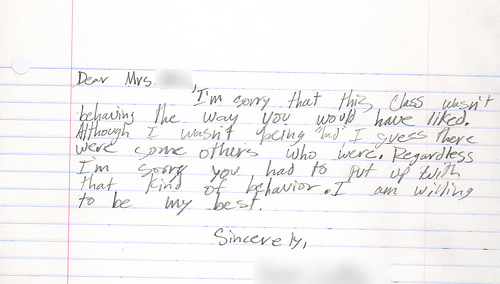 Dear Mrs
I'm sorry that this class wasn't
behaving the way you would have liked.
Although I wasn't being "bad" I guess there
were some others who were. Regardless
I'm sorry you had to put up with
that kind of behavior. I am willing
to be my best.
Sincerely,